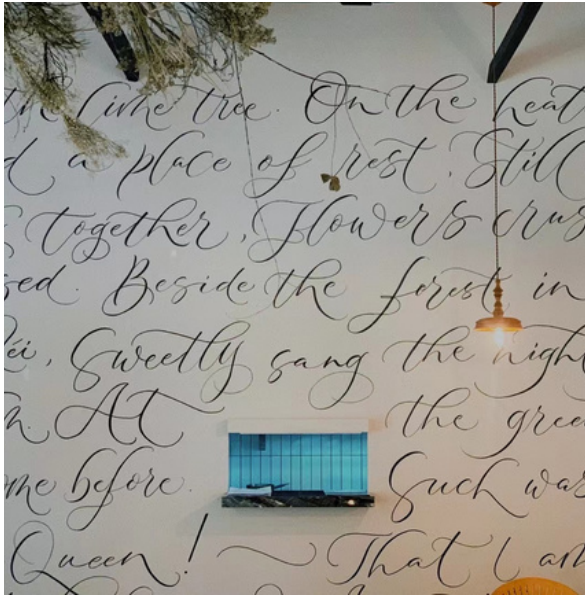 lime tree. On the heat
a place of rest, Still
together, Flowers crus
sed. Beside the forest in
ei, Sweetly sang the night
At the gree
me before. Such was
Queen! ~ That I am